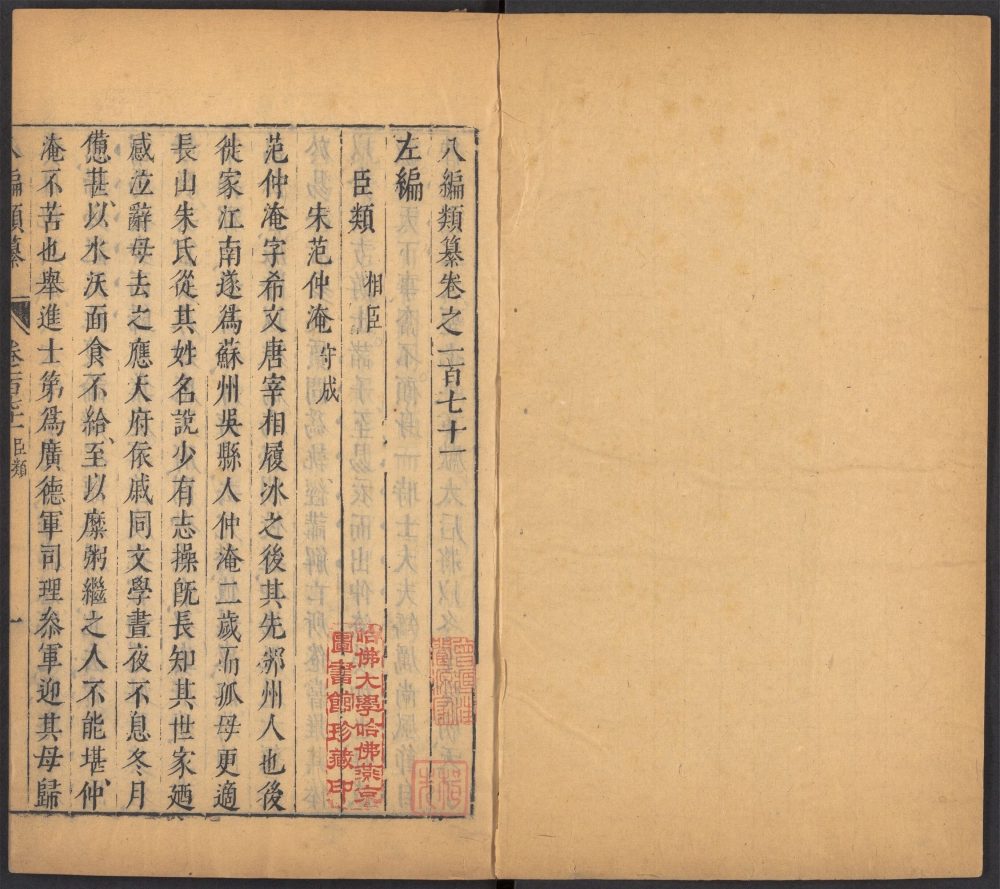 八編類纂卷之一百七十一
左編
臣類 相臣
宋范仲淹 守成
范仲淹字希文唐宰相履冰之後其先邠州人也後
徙家江南遂爲蘇州吳縣人仲淹二歲而孤母更適
長山朱氏從其姓名說少有志操旣長知其世家廼
感泣辭母去之應天府依戚同文學晝夜不息冬月
憊甚以水沃面食不給至以糜粥繼之人不能堪仲
淹不苦也舉進士第爲廣德軍司理叅軍迎其母歸
八編類纂
臣類
一
哈佛大學哈佛燕京
圖書館珍藏印